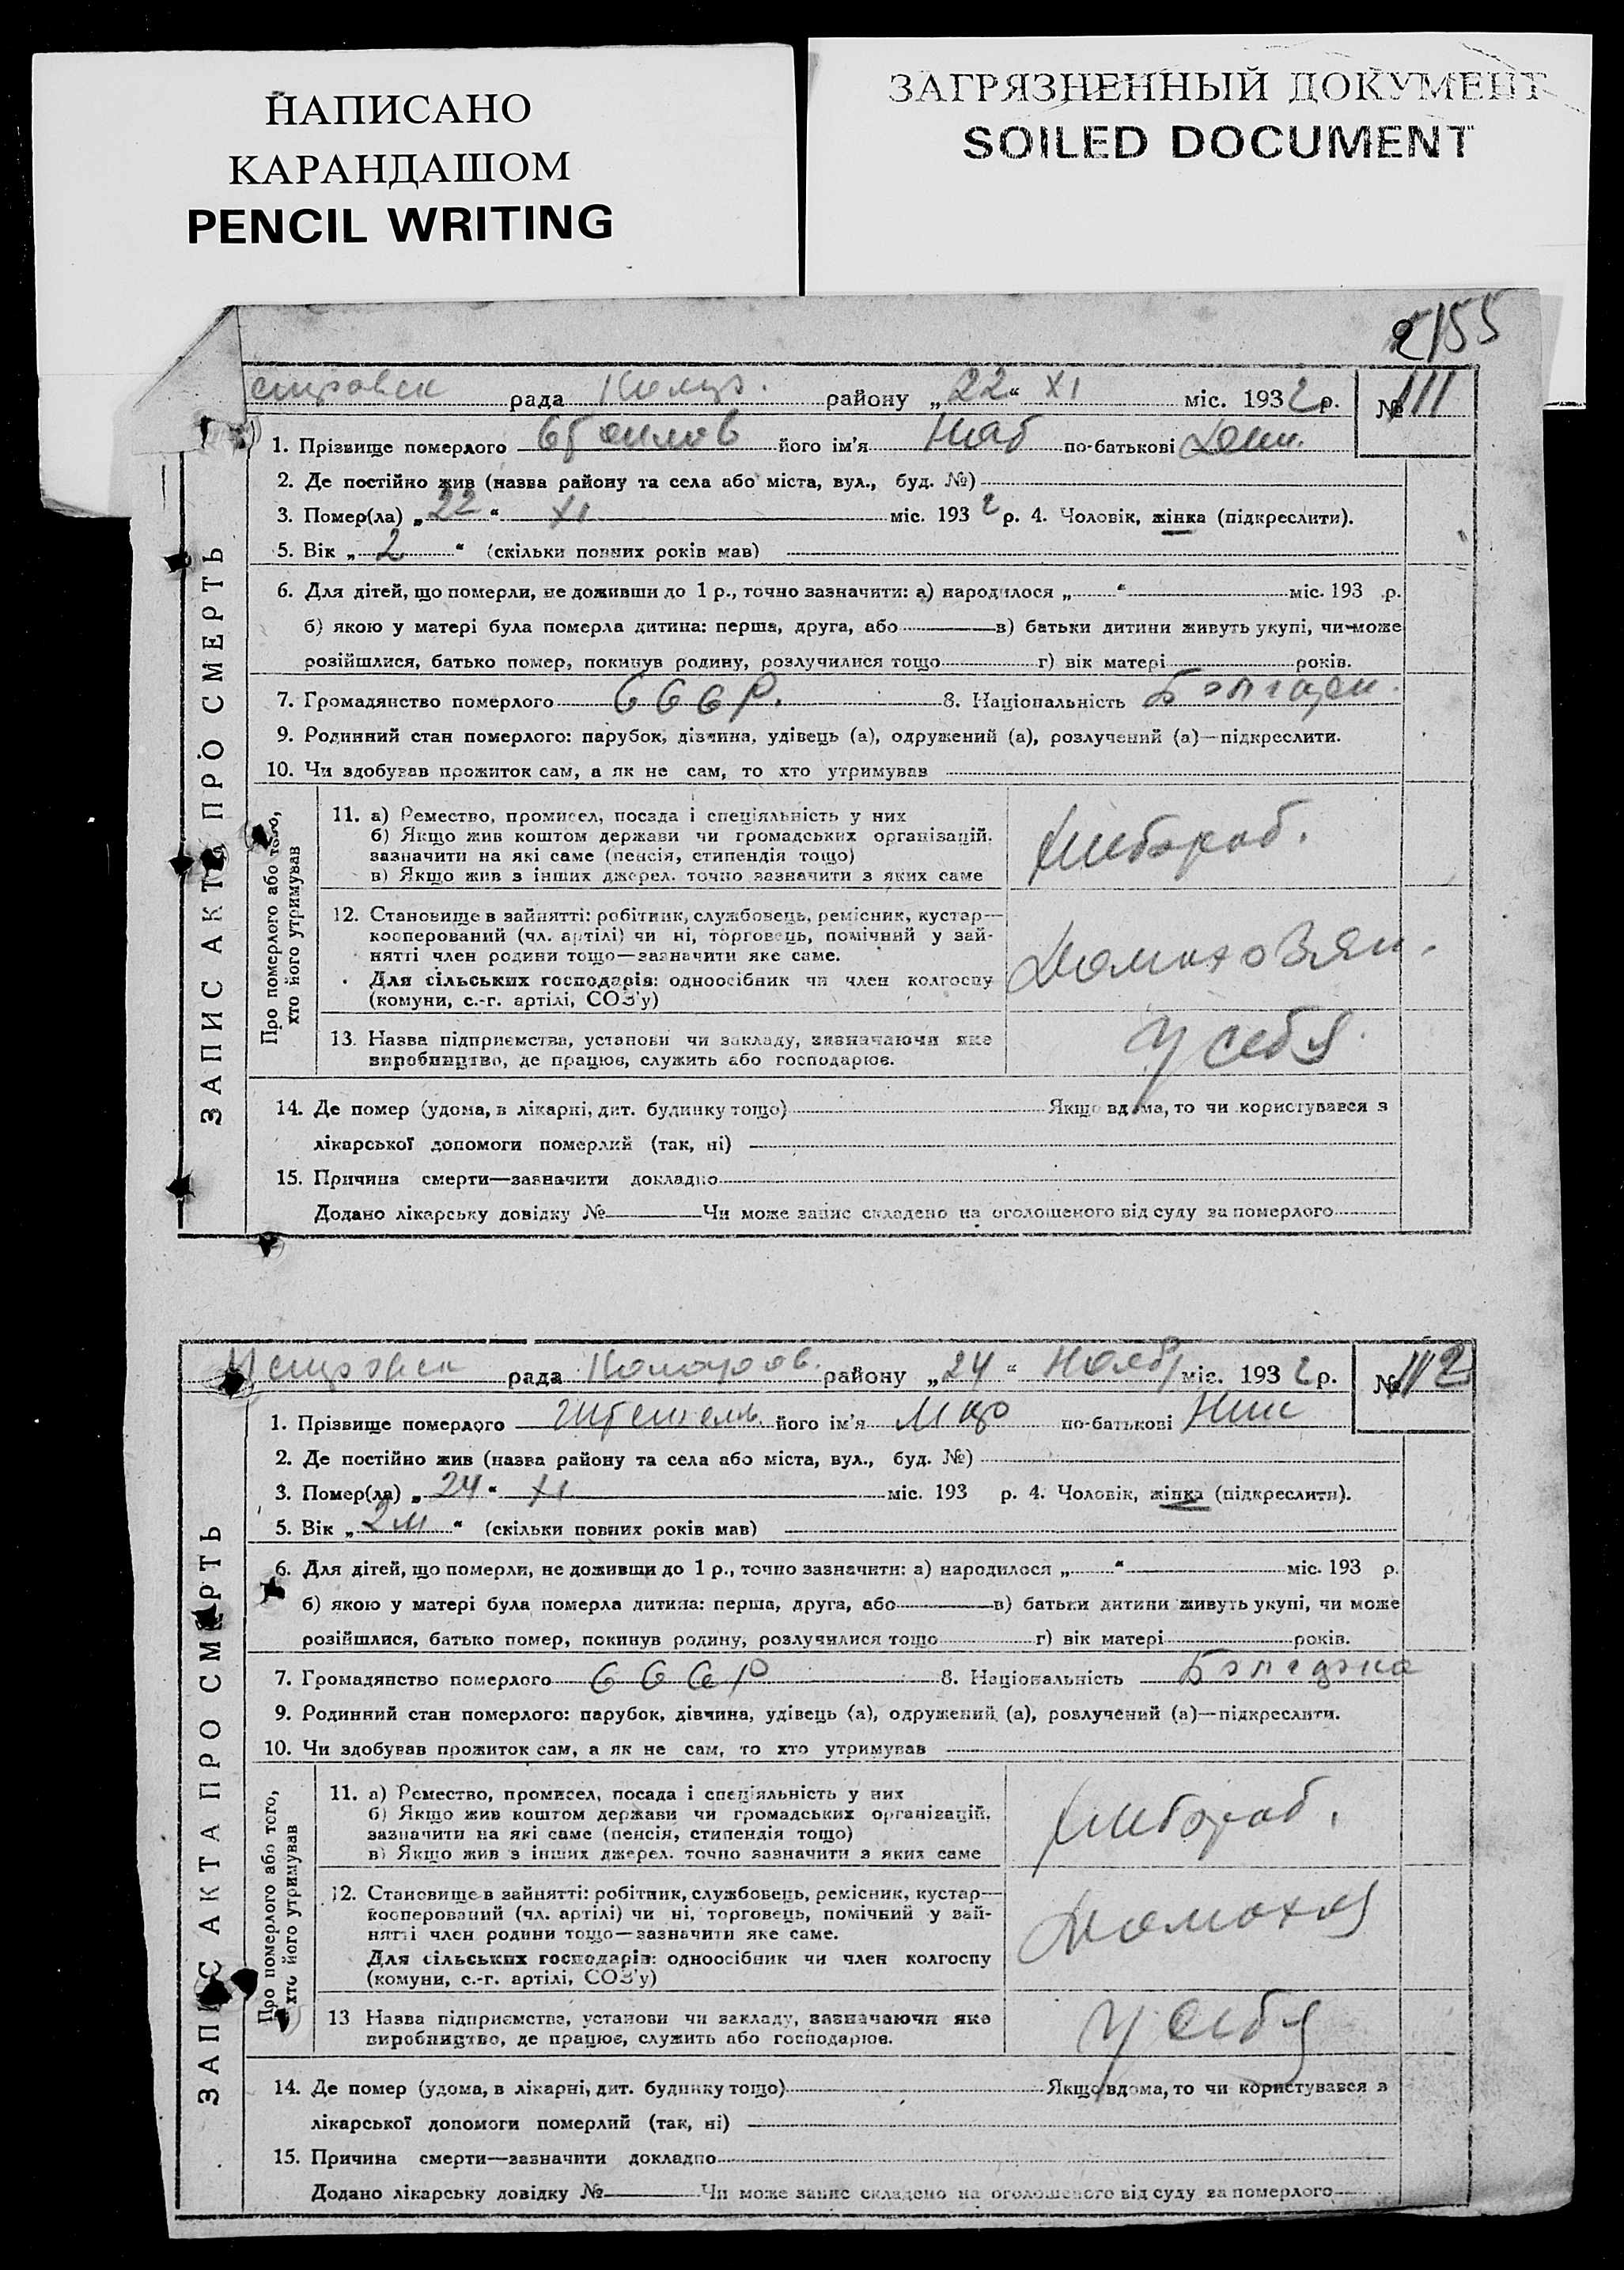 НАПИСАНО
КАРАНДАШОМ
PENCIL WRITING
ЗАГРЯЗНЕННЫЙ ДОКУМЕНТ
SOILED DOCUMENT
2155
рада району „22“ XI міс. 1932 р. № 111
1. Прізвище померлого його ім'я по-батькові
2. Де постійно жив (назва району та села або міста, вул., буд. №)
3. Помер(ла) „22“ XI міс. 1932 р. 4. Чоловік, жінка (підкреслити).
5. Вік „2“ (скільки повних років мав)
6. Для дітей, що померли, не доживши до 1 р., точно зазначити: а) народилося „ “ міс. 193 р.
б) якою у матері була померла дитина: перша, друга, або в) батьки дитини живуть укупі, чи може
розійшлися, батько помер, покинув родину, розлучилися тощо г) вік матері років.
7. Громадянство померлого СССР. 8. Національність
9. Родинний стан померлого: парубок, дівчина, удівець (а), одружений (а), розлучений (а)—підкреслити.
10. Чи здобував прожиток сам, а як не сам, то хто утримував
Про померлого або того, хто його утримував
11. а) Ремество, промисел, посада і спеціяльність у них
б) Якщо жив коштом держави чи громадських організацій,
зазначити на які саме (пенсія, стипендія тощо)
в) Якщо жив з інших джерел, точно зазначити з яких саме
Хлебороб.
12. Становище в зайнятті: робітник, службовець, ремісник, кустар—
кооперований (чл. артілі) чи ні, торговець, помічний у зай-
нятті член родини тощо—зазначити яке саме.
Для сільських господарів: одноосібник чи член колгоспу
(комуни, с.-г. артілі, СОЗ'у)
Домохозяин.
13. Назва підприємства, установи чи закладу, зазначаючи яке
виробництво, де працює, служить або господарює.
У себя
14. Де помер (удома, в лікарні, дит. будинку тощо) Якщо вдома, то чи користувався з
лікарської допомоги померлий (так, ні)
15. Причина смерти—зазначити докладно
Додано лікарську довідку № Чи може запис складено на оголошеного від суду за померлого
ЗАПИС АКТА ПРО СМЕРТЬ
рада району „24“ Нояб міс. 1932 р. № 112
1. Прізвище померлого його ім'я по-батькові
2. Де постійно жив (назва району та села або міста, вул., буд. №)
3. Помер(ла) „24“ XI міс. 193 р. 4. Чоловік, жінка (підкреслити).
5. Вік „2 м“ (скільки повних років мав)
6. Для дітей, що померли, не доживши до 1 р., точно зазначити: а) народилося „ “ міс. 193 р.
б) якою у матері була померла дитина: перша, друга, або в) батьки дитини живуть укупі, чи може
розійшлися, батько помер, покинув родину, розлучилися тощо г) вік матері років.
7. Громадянство померлого СССР 8. Національність Болгарка
9. Родинний стан померлого: парубок, дівчина, удівець (а), одружений (а), розлучений (а)—підкреслити.
10. Чи здобував прожиток сам, а як не сам, то хто утримував
Про померлого або того, хто його утримував
11. а) Ремество, промисел, посада і спеціяльність у них
б) Якщо жив коштом держави чи громадських організацій,
зазначити на які саме (пенсія, стипендія тощо)
в) Якщо жив з інших джерел, точно зазначити з яких саме
Хлебороб.
12. Становище в зайнятті: робітник, службовець, ремісник, кустар—
кооперований (чл. артілі) чи ні, торговець, помічний у зай-
нятті член родини тощо—зазначити яке саме.
Для сільських господарів: одноосібник чи член колгоспу
(комуни, с.-г. артілі, СОЗ'у)
13 Назва підприємства, установи чи закладу, зазначаючи яке
виробництво, де працює, служить або господарює.
У себя
14. Де помер (удома, в лікарні, дит. будинку тощо) Якщо вдома, то чи користувався з
лікарської допомоги померлий (так, ні)
15. Причина смерти—зазначити докладно
Додано лікарську довідку № Чи може запис складено на оголошеного від суду за померлого
ЗАПИС АКТА ПРО СМЕРТЬ